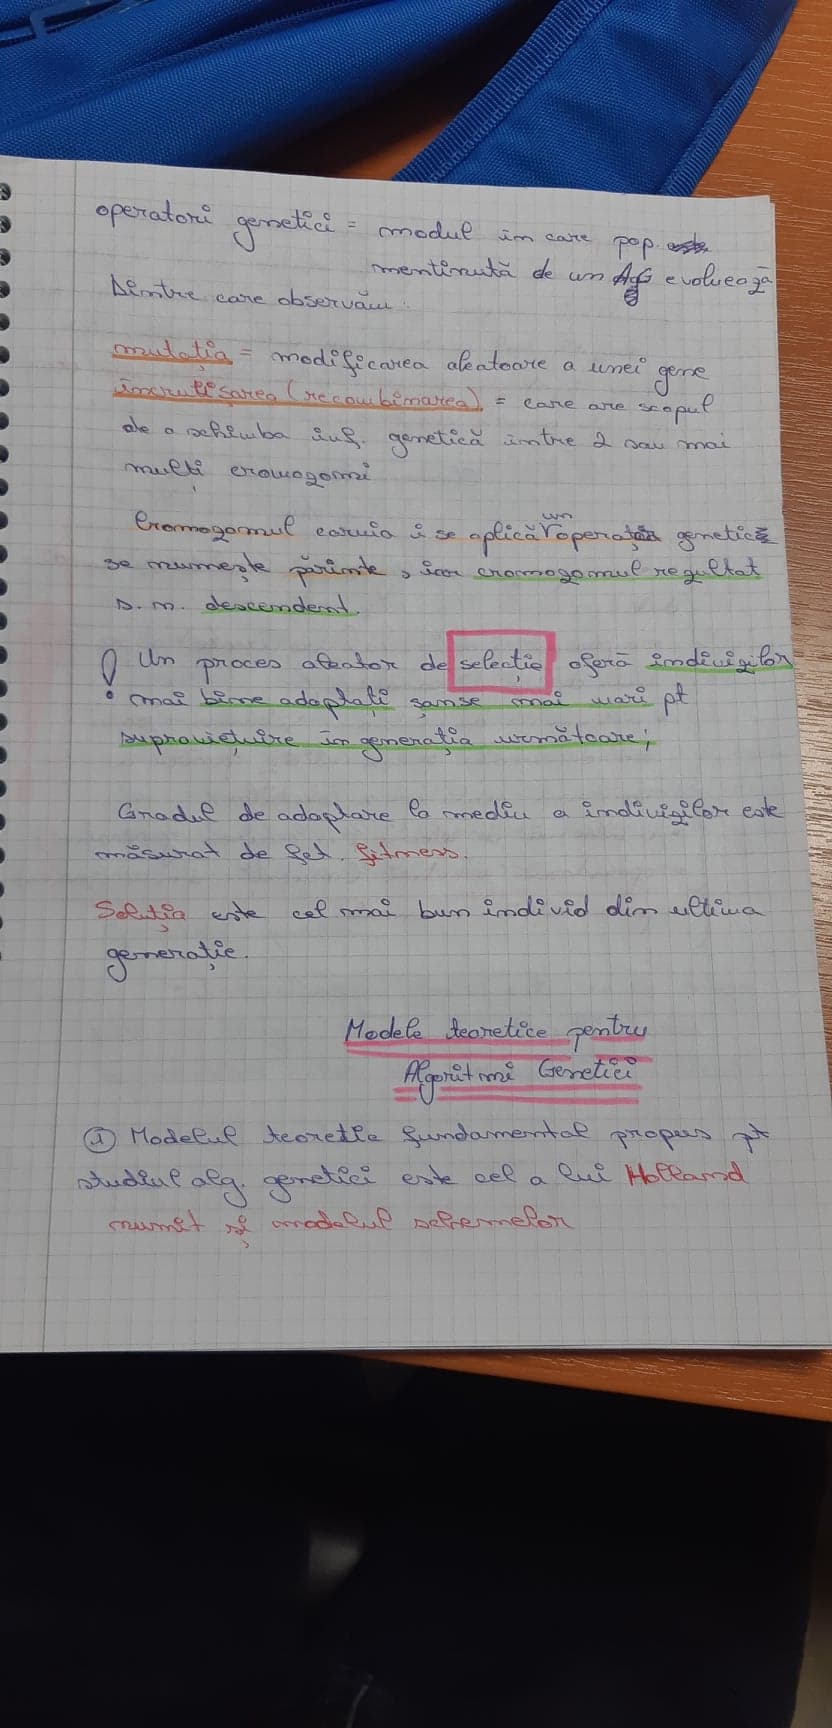 operatori genetici = modul in care pop.
mentinută de un AG evoluează
Dintre care observăm:
mutația = modificarea aleatoare a unei gene
încrucișarea (recombinarea) = care are scopul
de a schimba inf. genetică intre 2 sau mai
mulți cromozomi
un
Cromozomul caruia i se aplică operator genetic
se numește părinte, iar cromozomul rezultat
s.n. descendent.
! Un proces aleator de selecție oferă indivizilor
mai bine adaptați șanse mai mari pt
supraviețuire în generația următoare;
Gradul de adaptare la mediu a indivizilor este
măsurat de fct. fitness.
Soluția este cel mai bun individ din ultima
generație.
Modele teoretice pentru
Algoritmi Genetici
① Modelul teoretic fundamental propus pt
studiul alg. genetici este cel a lui Holland
numit și modelul schemelor